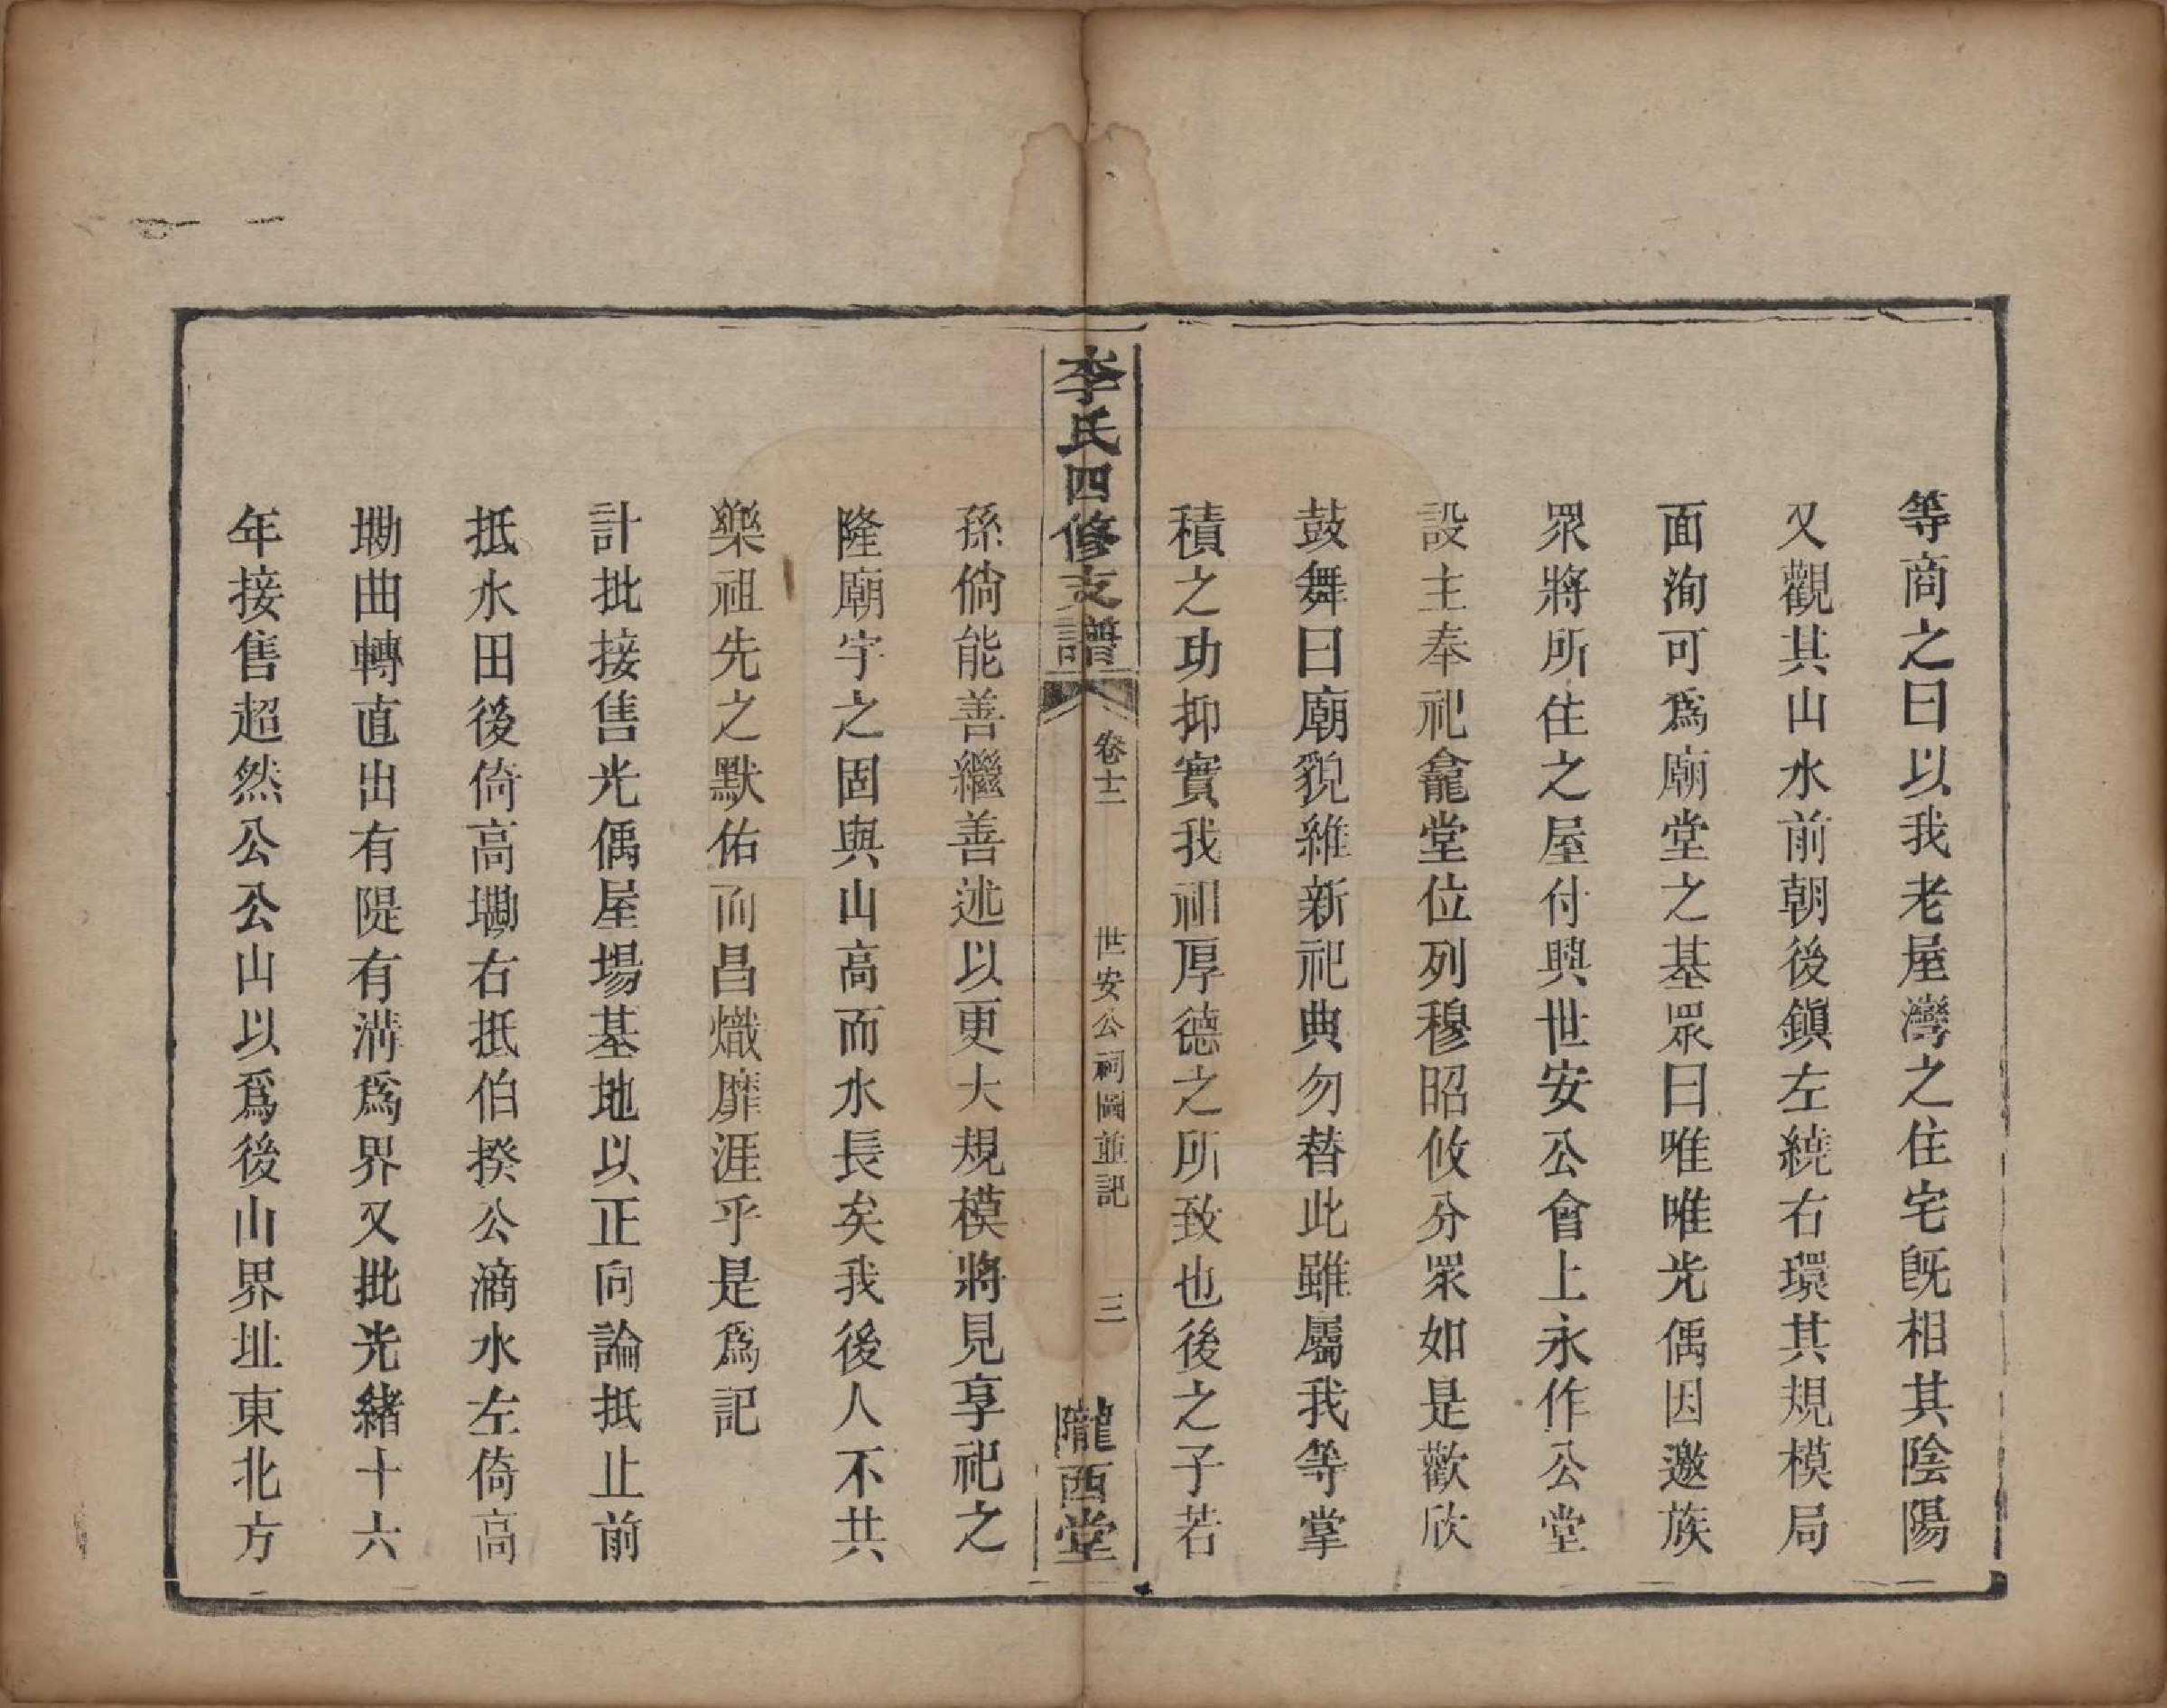 等商之曰以我老屋灣之住宅旣相其陰陽
又觀其山水前朝後鎭左繞右環其規模局
面洵可爲廟堂之基眾曰唯唯光偶因邀族
眾將所住之屋付與世安公會上永作公堂
設主奉祀龕堂位列穆昭攸分眾如是歡欣
鼓舞曰廟貌維新祀典勿替此雖屬我等掌
積之功抑實我祖厚德之所致也後之子若
李氏四修支譜
卷十二
世安公祠圖並記
三
隴西堂
孫倘能善繼善述以更大規模將見享祀之
隆廟宇之固與山高而水長矣我後人不共
樂祖先之默佑而昌熾靡涯乎是爲記
計批接售光偶屋場基地以正向論抵止前
抵水田後倚高墈右抵伯揆公滴水左倚高
墈曲轉直出有隄有溝爲界又批光緒十六
年接售超然公公山以爲後山界址東北方